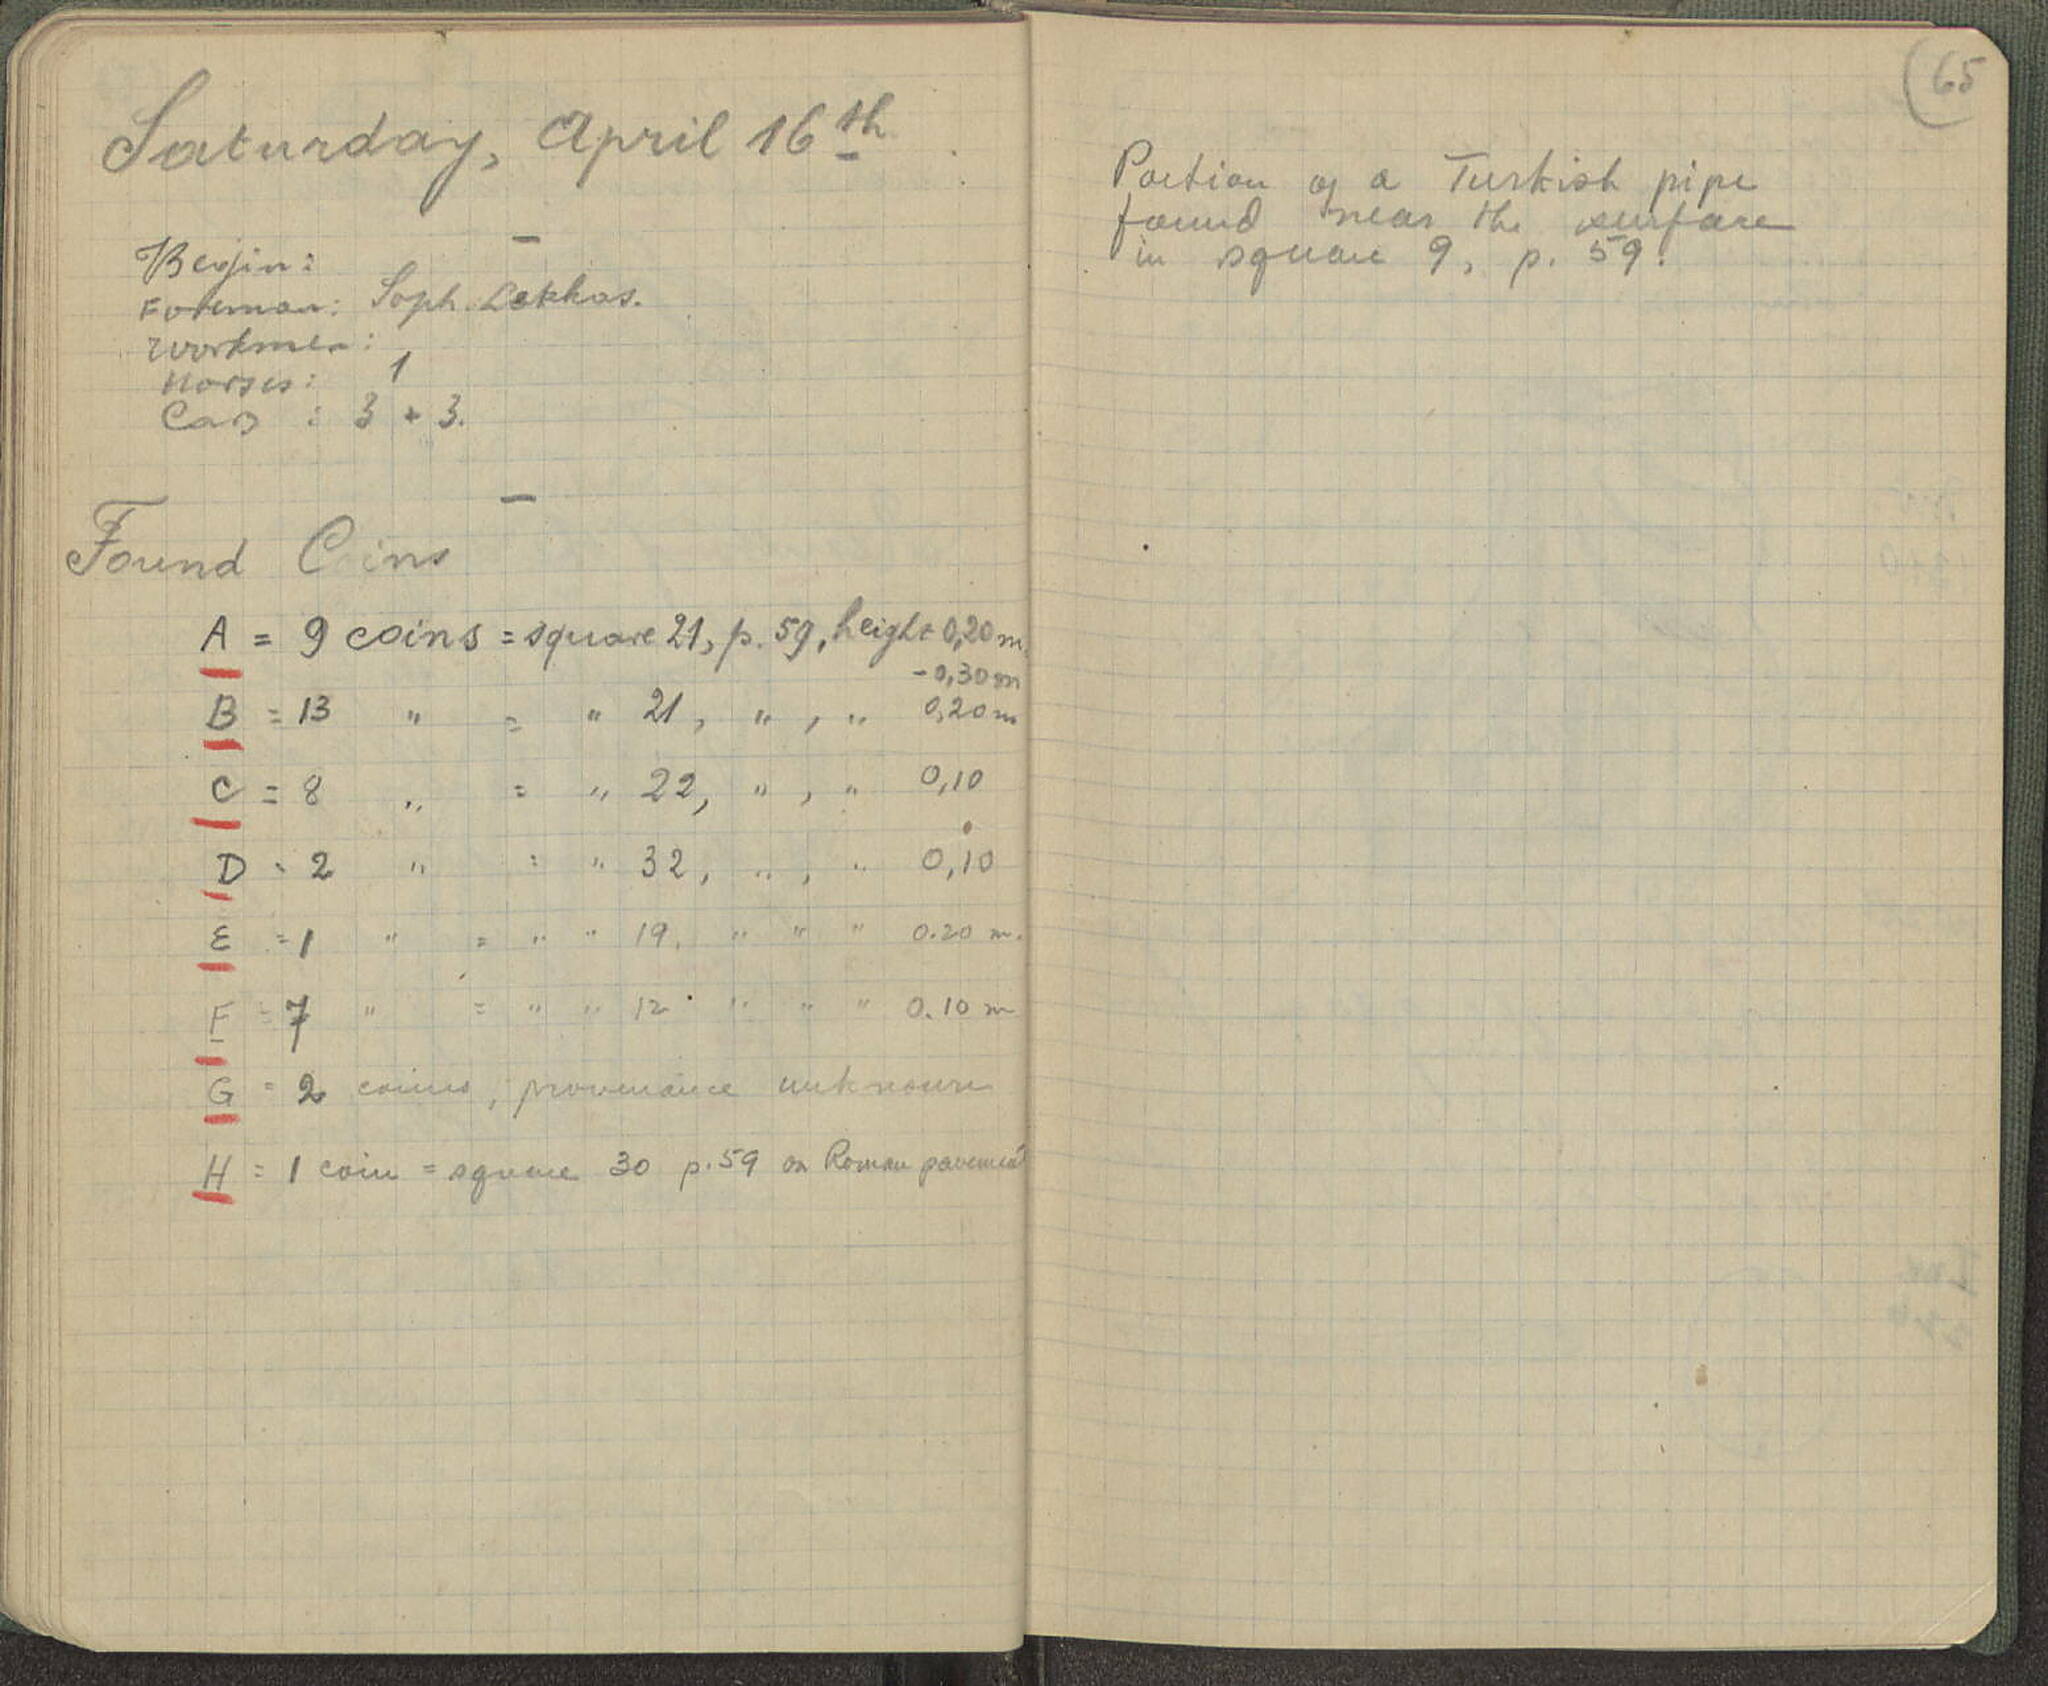 Saturday, April 16th
Begin:
Foreman: Soph. Lekkas.
Workmen:
Horses: 1
Cars : 3 + 3.
Found Coins
A = 9 coins = square 21, p. 59, height 0,20 m.
- 0,30 m
B = 13 " = " 21, " , " 0,20 m
C = 8 " = " 22, " , " 0,10
D = 2 " = " 32, " , " 0,10
E = 1 " = " " 19, " " " 0.20 m.
F = 7 " = " " 12 " " " 0.10 m
G = 2 coins, provenance unknown
H = 1 coin = square 30 p. 59 on Roman pavement
65
Portion of a Turkish pipe
found near the surface
in square 9, p. 59.